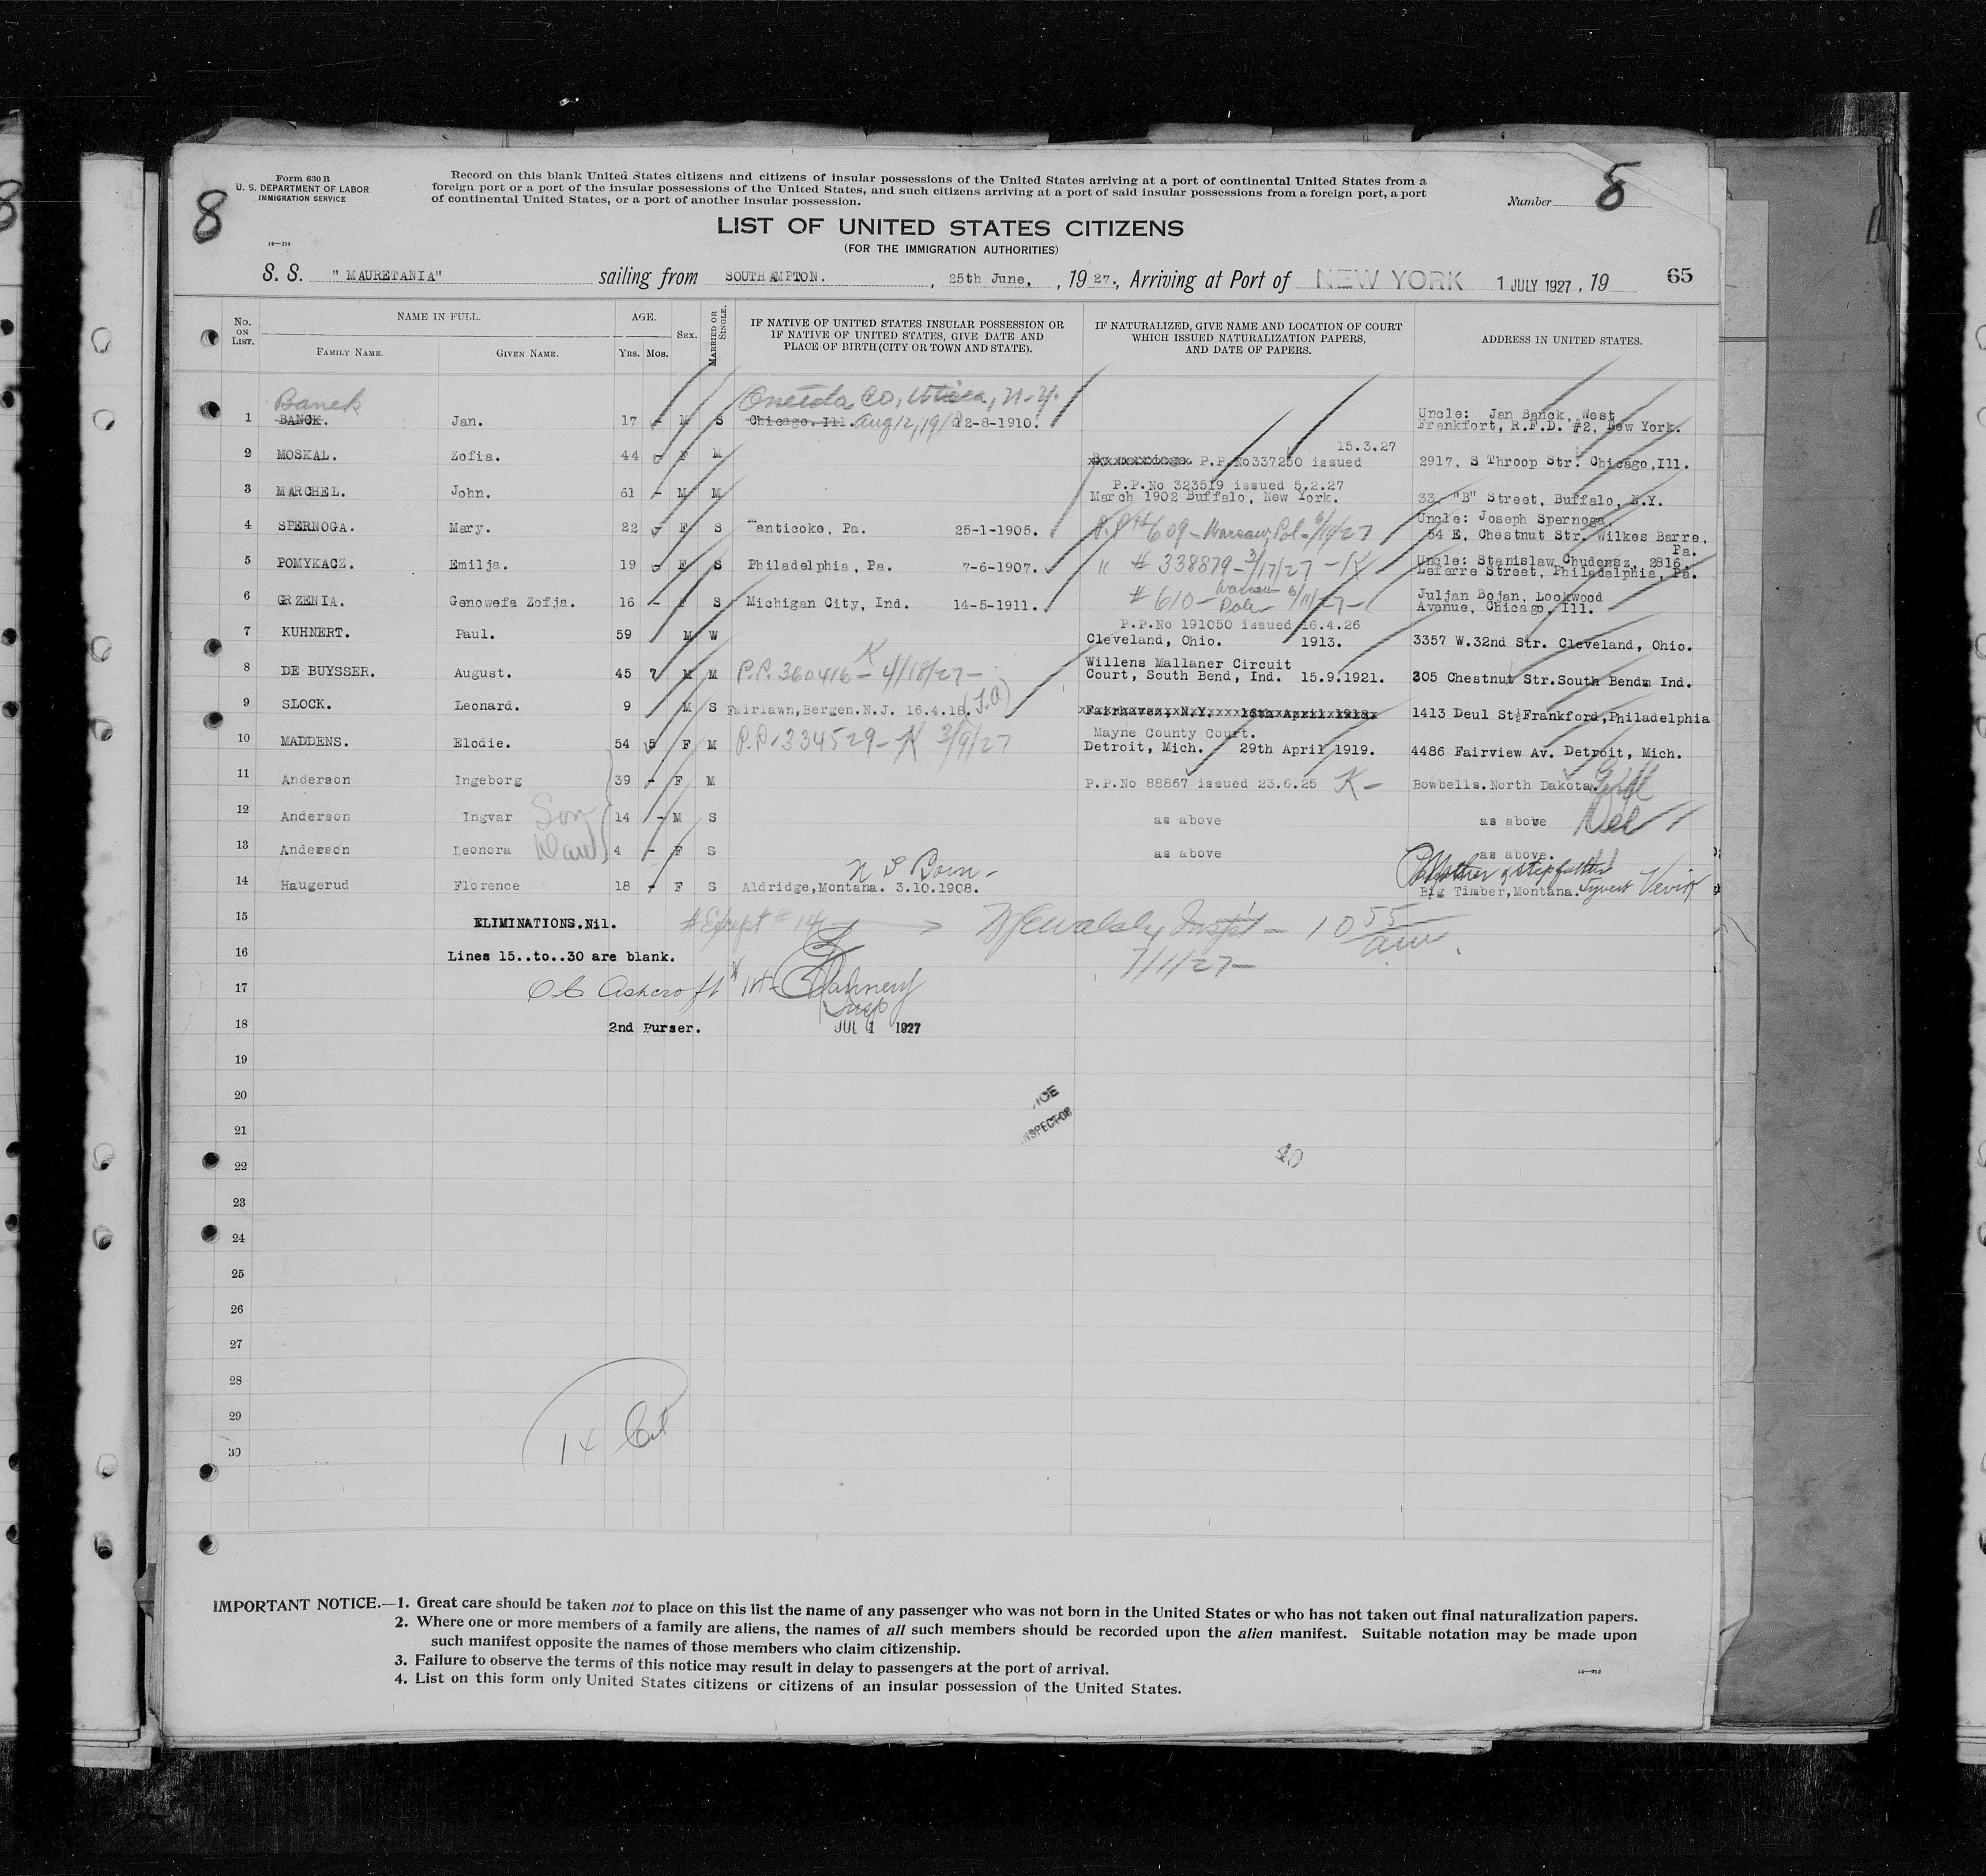 Form 630 B
U. S. DEPARTMENT OF LABOR
IMMIGRATION SERVICE
8
Record on this blank United States citizens and citizens of insular possessions of the United States arriving at a port of continental United States from a
foreign port or a port of the insular possessions of the United States, and such citizens arriving at a port of said insular possessions from a foreign port, a port
of continental United States, or a port of another insular possession.
Number
LIST OF UNITED STATES CITIZENS
(FOR THE IMMIGRATION AUTHORITIES)
S. S. " MAURETANIA" sailing from SOUTHAMPTON. , 25th June, , 19 27., Arriving at Port of NEW YORK 1 JULY 1927 , 19 65
No. ON LIST. NAME IN FULL. FAMILY NAME. GIVEN NAME. AGE. Yrs. Mos. SEX. MARRIED OR SINGLE. IF NATIVE OF UNITED STATES INSULAR POSSESSION OR IF NATIVE OF UNITED STATES, GIVE DATE AND PLACE OF BIRTH (CITY OR TOWN AND STATE). IF NATURALIZED, GIVE NAME AND LOCATION OF COURT WHICH ISSUED NATURALIZATION PAPERS, AND DATE OF PAPERS. ADDRESS IN UNITED STATES.
Banek Oneida Co, Utica, N.Y.
1 BANCK. Jan. 17 - M S Chicago. Ill. Aug 12, 1910 12-8-1910. Uncle: Jan Banck, West
Frankfort, R.F.D. #2, New York.
15.3.27
2 MOSKAL. Zofia. 44 F M P.P.No337250 issued 2917, S Throop Str. Chicago,Ill.
P.P.No 323519 issued 5.2.27
3 MARCHEL. John. 61 - M M March 1902 Buffalo, New York. 33, "B" Street, Buffalo, N.Y.
Uncle: Joseph Spernoga,
4 SPERNOGA. Mary. 22 F S anticoke, Pa. 25-1-1905. P.P.# 609 - Warsaw, Pol - 6/11/27 54 E, Chestnut Str. Wilkes Barre,
Pa.
5 POMYKACZ. Emilja. 19 F S Philadelphia, Pa. 7-6-1907. " # 338879 - 3/17/27 - K Uncle: Stanislaw Chudensz, 2816,
Lefarre Street, Philadelphia, Pa.
6 GRZENIA. Genowefa Zofja. 16 - F S Michigan City, Ind. 14-5-1911. # 610 - Warsaw Polen 6/11/27 - Juljan Bojan, Lookwood
Avenue, Chicago, Ill.
P.P.No 191050 issued 16.4.26
7 KUHNERT. Paul. 59 M W Cleveland, Ohio. 1913. 3357 W.32nd Str. Cleveland, Ohio.
Willens Mallaner Circuit
8 DE BUYSSER. August. 45 7 M M P.P. 360416 - K 4/18/27 - Court, South Bend, Ind. 15.9.1921. 305 Chestnut Str.South Bendm Ind.
9 SLOCK. Leonard. 9 M S Fairlawn,Bergen.N.J. 16.4.18. Fairhaven, N.Y. 16th April 1918. 1413 Deul St. Frankford,Philadelphia
Mayne County Court.
10 MADDENS. Elodie. 54 5 F M P.P. 334529 - K 3/9/27 Detroit, Mich. - 29th April 1919. 4486 Fairview Av. Detroit, Mich.
11 Anderson Ingeborg 39 - F M P.P.No 88867 issued 23.6.25 K - Bowbells.North Dakota.
12 Anderson Ingvar Son 14 - M S as above as above
13 Anderson Leonora Dau 4 - F S as above as above.
U S Born - Mother & stepfather
14 Haugerud Florence 18 - F S Aldridge,Montana. 3.10.1908. Big Timber,Montana. Syvert Vevik
15 ELIMINATIONS.Nil. # Except # 14 Walsh Inspt - 10 55 am
16 Lines 15..to..30 are blank. 7/1/27 -
17 Ashcroft # 14 - Flannery
Insp
18 2nd Purser. JUL 1 1927
19
20
INSPECTOR
21
22
23
24
25
26
27
28
29
14 Cit
30
IMPORTANT NOTICE.—1. Great care should be taken not to place on this list the name of any passenger who was not born in the United States or who has not taken out final naturalization papers.
2. Where one or more members of a family are aliens, the names of all such members should be recorded upon the alien manifest. Suitable notation may be made upon
such manifest opposite the names of those members who claim citizenship.
3. Failure to observe the terms of this notice may result in delay to passengers at the port of arrival.
4. List on this form only United States citizens or citizens of an insular possession of the United States.